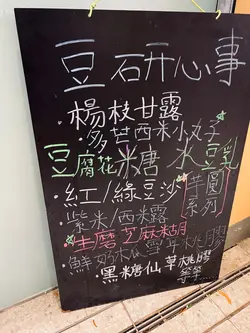 豆研心事
·楊枝甘露
多芒西米小丸子
豆腐花糖水豆乳
·紅/綠豆沙
華園系列
·紫米/西米露
·生磨芝麻糊
·鮮奶雪耳桃膠
·黑糖仙草桃膠
等等